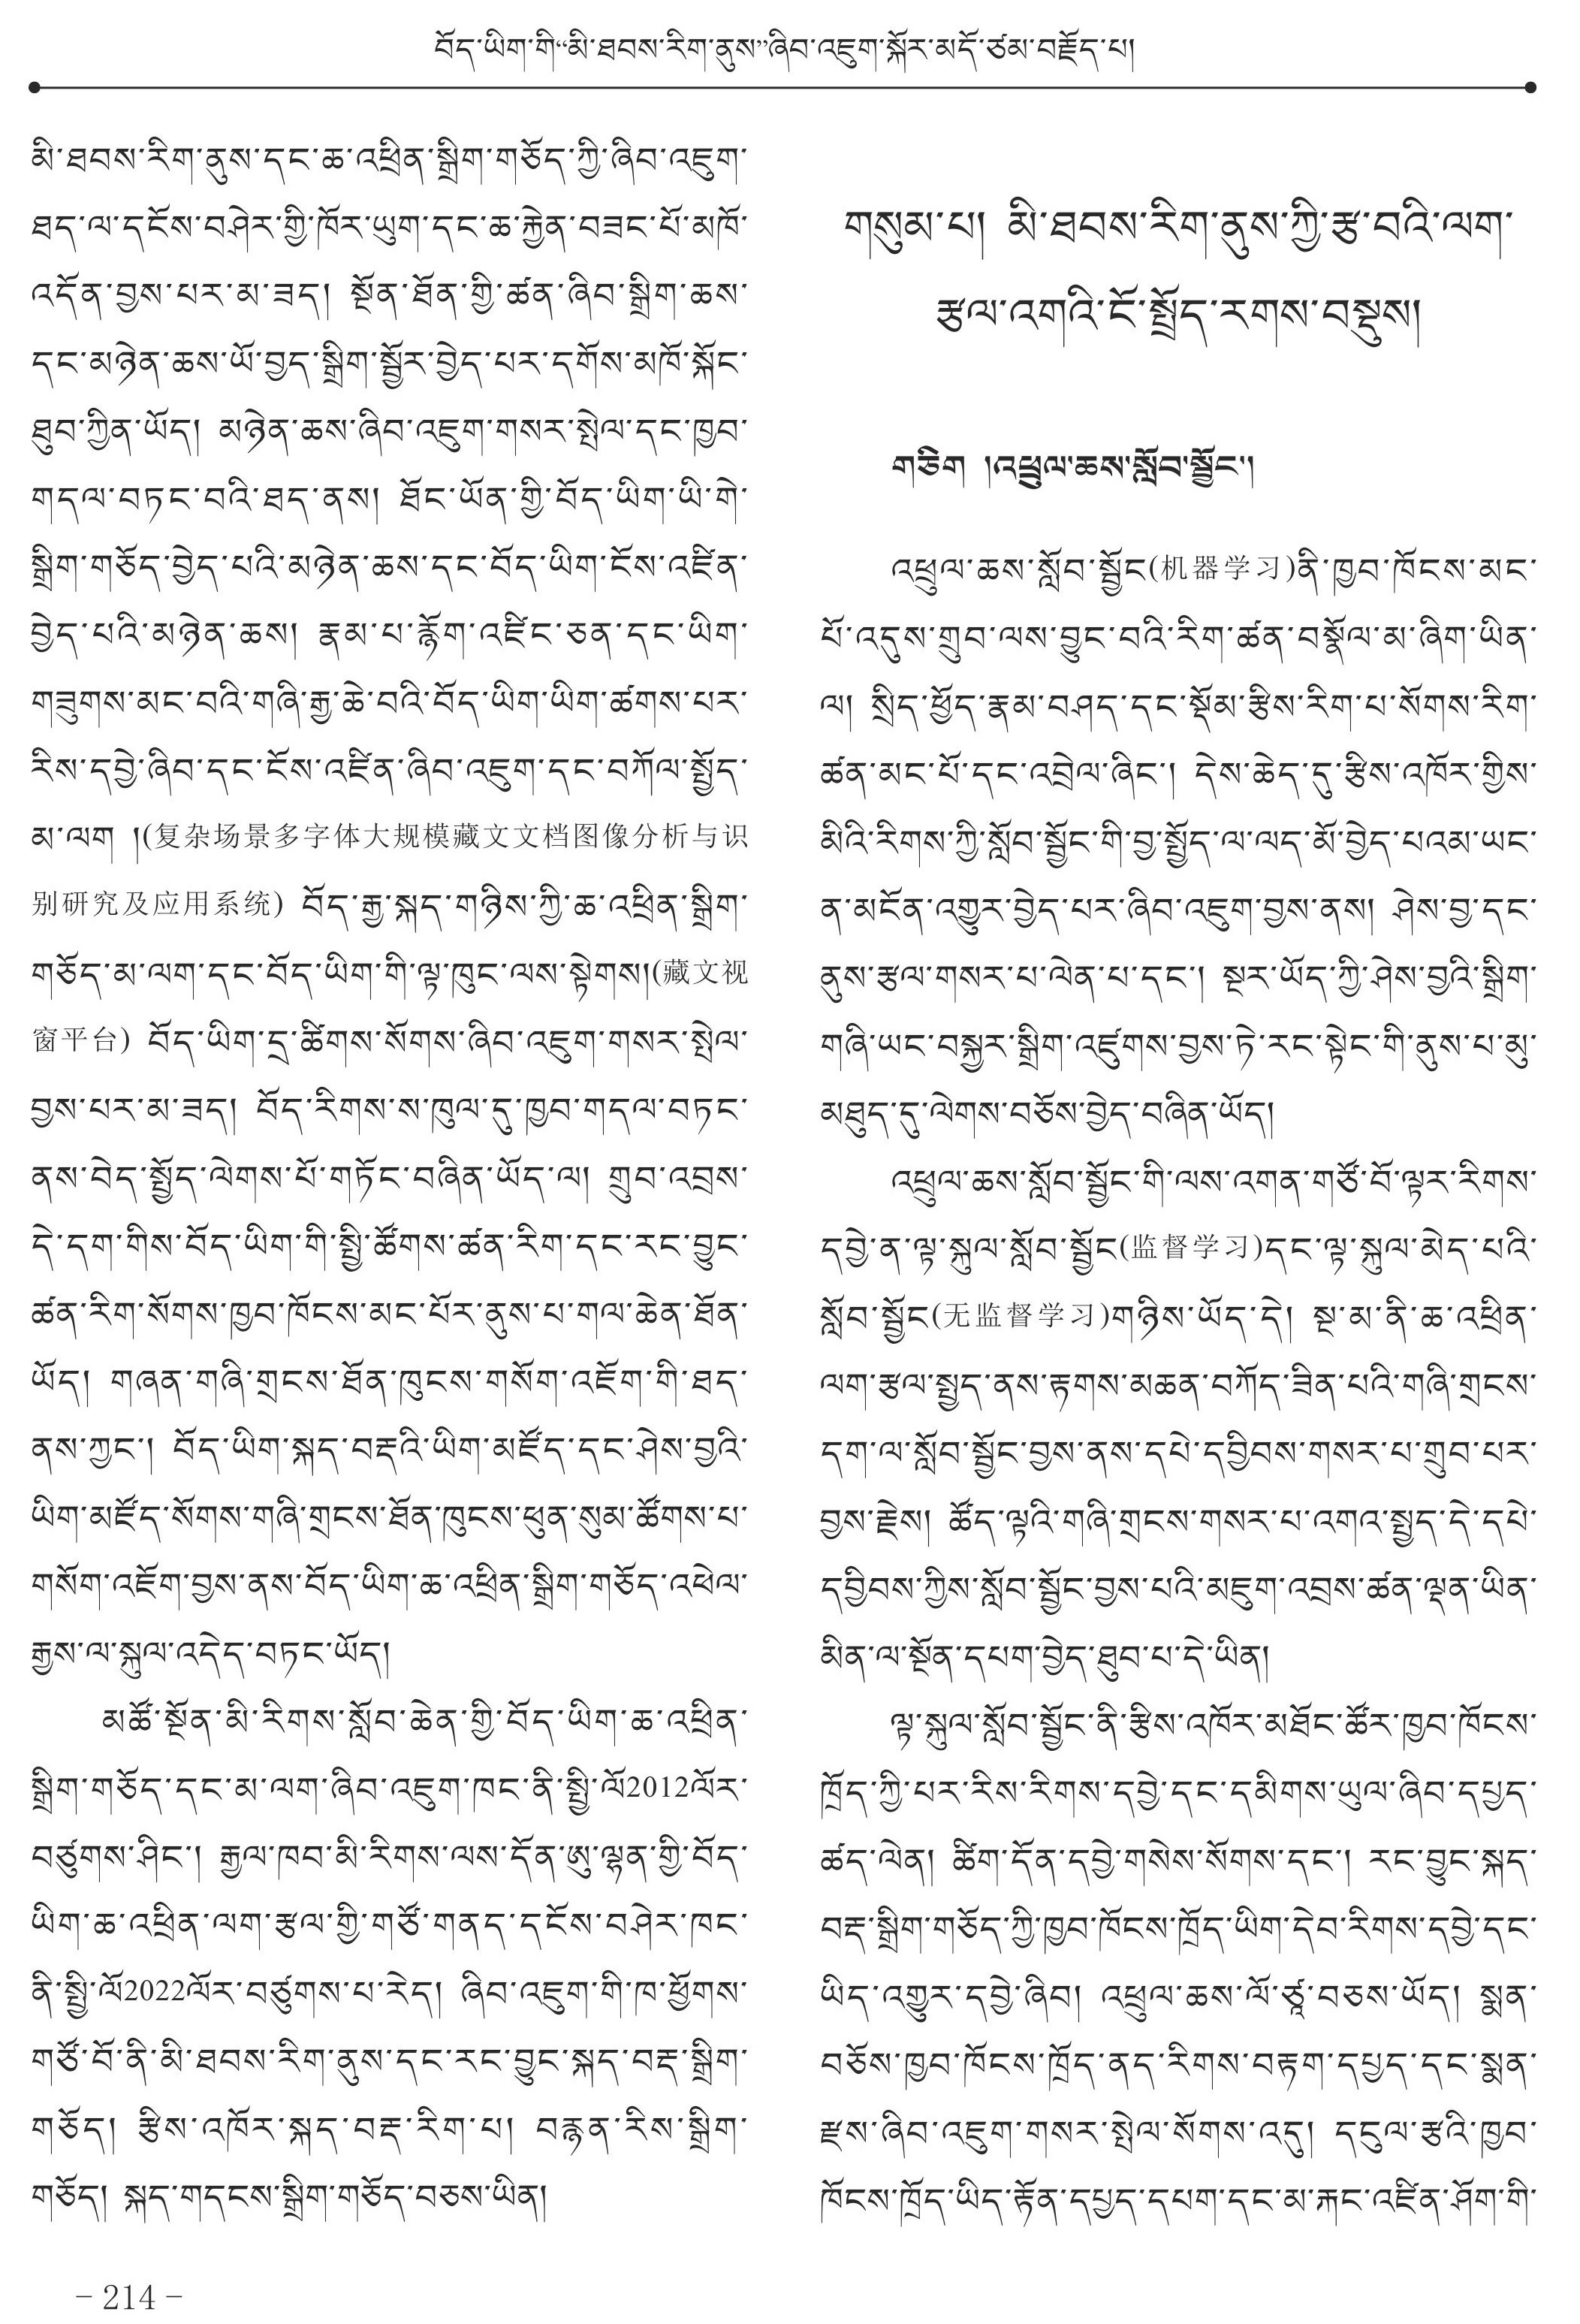 བོད་ཡིག་གི“མི་ཐབས་རིག་ནུས”ཞིབ་འཇུག་སྐོར་མདོ་ཙམ་བརྗོད་པ།
མི་ཐབས་རིག་ནུས་དང་ཆ་འཕྲིན་སྒྲིག་གཅོད་ཀྱི་ཞིབ་འཇུག་
ཐད་ལ་དངོས་བཤེར་གྱི་ཁོར་ཡུག་དང་ཆ་རྐྱེན་བཟང་པོ་མཁོ་
འདོན་བྱས་པར་མ་ཟད། སྔོན་ཐོན་གྱི་ཚན་ཞིབ་སྒྲིག་ཆས་
དང་མཉེན་ཆས་ཡོ་བྱད་སྒྲིག་སྦྱོར་བྱེད་པར་དགོས་མཁོ་སྐོང་
ཐུབ་ཀྱིན་ཡོད། མཉེན་ཆས་ཞིབ་འཇུག་གསར་སྤེལ་དང་ཁྱབ་
གདལ་བཏང་བའི་ཐད་ནས། ཐོང་ཡོན་གྱི་བོད་ཡིག་ཡི་གེ་
སྒྲིག་གཅོད་བྱེད་པའི་མཉེན་ཆས་དང་བོད་ཡིག་ངོས་འཛིན་
བྱེད་པའི་མཉེན་ཆས། རྣམ་པ་རྙོག་འཛིང་ཅན་དང་ཡིག་
གཟུགས་མང་བའི་གཞི་རྒྱ་ཆེ་བའི་བོད་ཡིག་ཡིག་ཚགས་པར་
རིས་དབྱེ་ཞིབ་དང་ངོས་འཛིན་ཞིབ་འཇུག་དང་བཀོལ་སྤྱོད་
མ་ལག །(复杂场景多字体大规模藏文文档图像分析与识
别研究及应用系统) བོད་རྒྱ་སྐད་གཉིས་ཀྱི་ཆ་འཕྲིན་སྒྲིག་
གཅོད་མ་ལག་དང་བོད་ཡིག་གི་ལྟ་ཁུང་ལས་སྟེགས།(藏文视
窗平台) བོད་ཡིག་དྲ་ཚིགས་སོགས་ཞིབ་འཇུག་གསར་སྤེལ་
བྱས་པར་མ་ཟད། བོད་རིགས་ས་ཁུལ་དུ་ཁྱབ་གདལ་བཏང་
ནས་བེད་སྤྱོད་ལེགས་པོ་གཏོང་བཞིན་ཡོད་ལ། གྲུབ་འབྲས་
དེ་དག་གིས་བོད་ཡིག་གི་སྤྱི་ཚོགས་ཚན་རིག་དང་རང་བྱུང་
ཚན་རིག་སོགས་ཁྱབ་ཁོངས་མང་པོར་ནུས་པ་གལ་ཆེན་ཐོན་
ཡོད། གཞན་གཞི་གྲངས་ཐོན་ཁུངས་གསོག་འཇོག་གི་ཐད་
ནས་ཀྱང་། བོད་ཡིག་སྐད་བརྡའི་ཡིག་མཛོད་དང་ཤེས་བྱའི་
ཡིག་མཛོད་སོགས་གཞི་གྲངས་ཐོན་ཁུངས་ཕུན་སུམ་ཚོགས་པ་
གསོག་འཇོག་བྱས་ནས་བོད་ཡིག་ཆ་འཕྲིན་སྒྲིག་གཅོད་འཕེལ་
རྒྱས་ལ་སྐུལ་འདེད་བཏང་ཡོད།
མཚོ་སྔོན་མི་རིགས་སློབ་ཆེན་གྱི་བོད་ཡིག་ཆ་འཕྲིན་
སྒྲིག་གཅོད་དང་མ་ལག་ཞིབ་འཇུག་ཁང་ནི་སྤྱི་ལོ2012ལོར་
བཙུགས་ཤིང་། རྒྱལ་ཁབ་མི་རིགས་ལས་དོན་ཨུ་ལྷན་གྱི་བོད་
ཡིག་ཆ་འཕྲིན་ལག་རྩལ་གྱི་གཙོ་གནད་དངོས་བཤེར་ཁང་
ནི་སྤྱི་ལོ2022ལོར་བཙུགས་པ་རེད། ཞིབ་འཇུག་གི་ཁ་ཕྱོགས་
གཙོ་བོ་ནི་མི་ཐབས་རིག་ནུས་དང་རང་བྱུང་སྐད་བརྡ་སྒྲིག་
གཅོད། རྩིས་འཁོར་སྐད་བརྡ་རིག་པ། བརྙན་རིས་སྒྲིག་
གཅོད། སྐད་གདངས་སྒྲིག་གཅོད་བཅས་ཡིན།
གསུམ་པ། མི་ཐབས་རིག་ནུས་ཀྱི་རྩ་བའི་ལག་
རྩལ་འགའི་ངོ་སྤྲོད་རགས་བསྡུས།
གཅིག །འཕྲུལ་ཆས་སློབ་སྦྱོང་།
འཕྲུལ་ཆས་སློབ་སྦྱོང(机器学习)ནི་ཁྱབ་ཁོངས་མང་
པོ་འདུས་གྲུབ་ལས་བྱུང་བའི་རིག་ཚན་བསྣོལ་མ་ཞིག་ཡིན་
ལ། སྲིད་ཕྱོད་རྣམ་བཤད་དང་སྡོམ་རྩིས་རིག་པ་སོགས་རིག་
ཚན་མང་པོ་དང་འབྲེལ་ཞིང་། དེས་ཆེད་དུ་རྩིས་འཁོར་གྱིས་
མིའི་རིགས་ཀྱི་སློབ་སྦྱོང་གི་བྱ་སྤྱོད་ལ་ལད་མོ་བྱེད་པའམ་ཡང་
ན་མངོན་འགྱུར་བྱེད་པར་ཞིབ་འཇུག་བྱས་ནས། ཤེས་བྱ་དང་
ནུས་རྩལ་གསར་པ་ལེན་པ་དང་། སྔར་ཡོད་ཀྱི་ཤེས་བྱའི་སྒྲིག་
གཞི་ཡང་བསྐྱར་སྒྲིག་འཛུགས་བྱས་ཏེ་རང་སྟེང་གི་ནུས་པ་མུ་
མཐུད་དུ་ལེགས་བཅོས་བྱེད་བཞིན་ཡོད།
འཕྲུལ་ཆས་སློབ་སྦྱོང་གི་ལས་འགན་གཙོ་བོ་ལྟར་རིགས་
དབྱེ་ན་ལྟ་སྐུལ་སློབ་སྦྱོང(监督学习)དང་ལྟ་སྐུལ་མེད་པའི་
སློབ་སྦྱོང(无监督学习)གཉིས་ཡོད་དེ། སྔ་མ་ནི་ཆ་འཕྲིན་
ལག་རྩལ་སྤྱད་ནས་རྟགས་མཆན་བཀོད་ཟིན་པའི་གཞི་གྲངས་
དག་ལ་སློབ་སྦྱོང་བྱས་ནས་དཔེ་དབྱིབས་གསར་པ་གྲུབ་པར་
བྱས་རྗེས། ཚོད་ལྟའི་གཞི་གྲངས་གསར་པ་འགའ་སྤྱད་དེ་དཔེ་
དབྱིབས་ཀྱིས་སློབ་སྦྱོང་བྱས་པའི་མཇུག་འབྲས་ཚན་ལྡན་ཡིན་
མིན་ལ་སྔོན་དཔག་བྱེད་ཐུབ་པ་དེ་ཡིན།
ལྟ་སྐུལ་སློབ་སྦྱོང་ནི་རྩིས་འཁོར་མཐོང་ཚོར་ཁྱབ་ཁོངས་
ཁྲོད་ཀྱི་པར་རིས་རིགས་དབྱེ་དང་དམིགས་ཡུལ་ཞིབ་དཔྱད་
ཚད་ལེན། ཚིག་དོན་དབྱེ་གསེས་སོགས་དང་། རང་བྱུང་སྐད་
བརྡ་སྒྲིག་གཅོད་ཀྱི་ཁྱབ་ཁོངས་ཁྲོད་ཡིག་དེབ་རིགས་དབྱེ་དང་
ཡིད་འགྱུར་དབྱེ་ཞིབ། འཕྲུལ་ཆས་ལོ་ཙཱ་བཅས་ཡོད། སྨན་
བཅོས་ཁྱབ་ཁོངས་ཁྲོད་ནད་རིགས་བརྟག་དཔྱད་དང་སྨན་
རྫས་ཞིབ་འཇུག་གསར་སྤེལ་སོགས་འདུ། དངུལ་རྩའི་ཁྱབ་
ཁོངས་ཁྲོད་ཡིད་རྟོན་དཔྱད་དཔག་དང་མ་རྐང་འཛིན་ཤོག་གི་
– 214 –